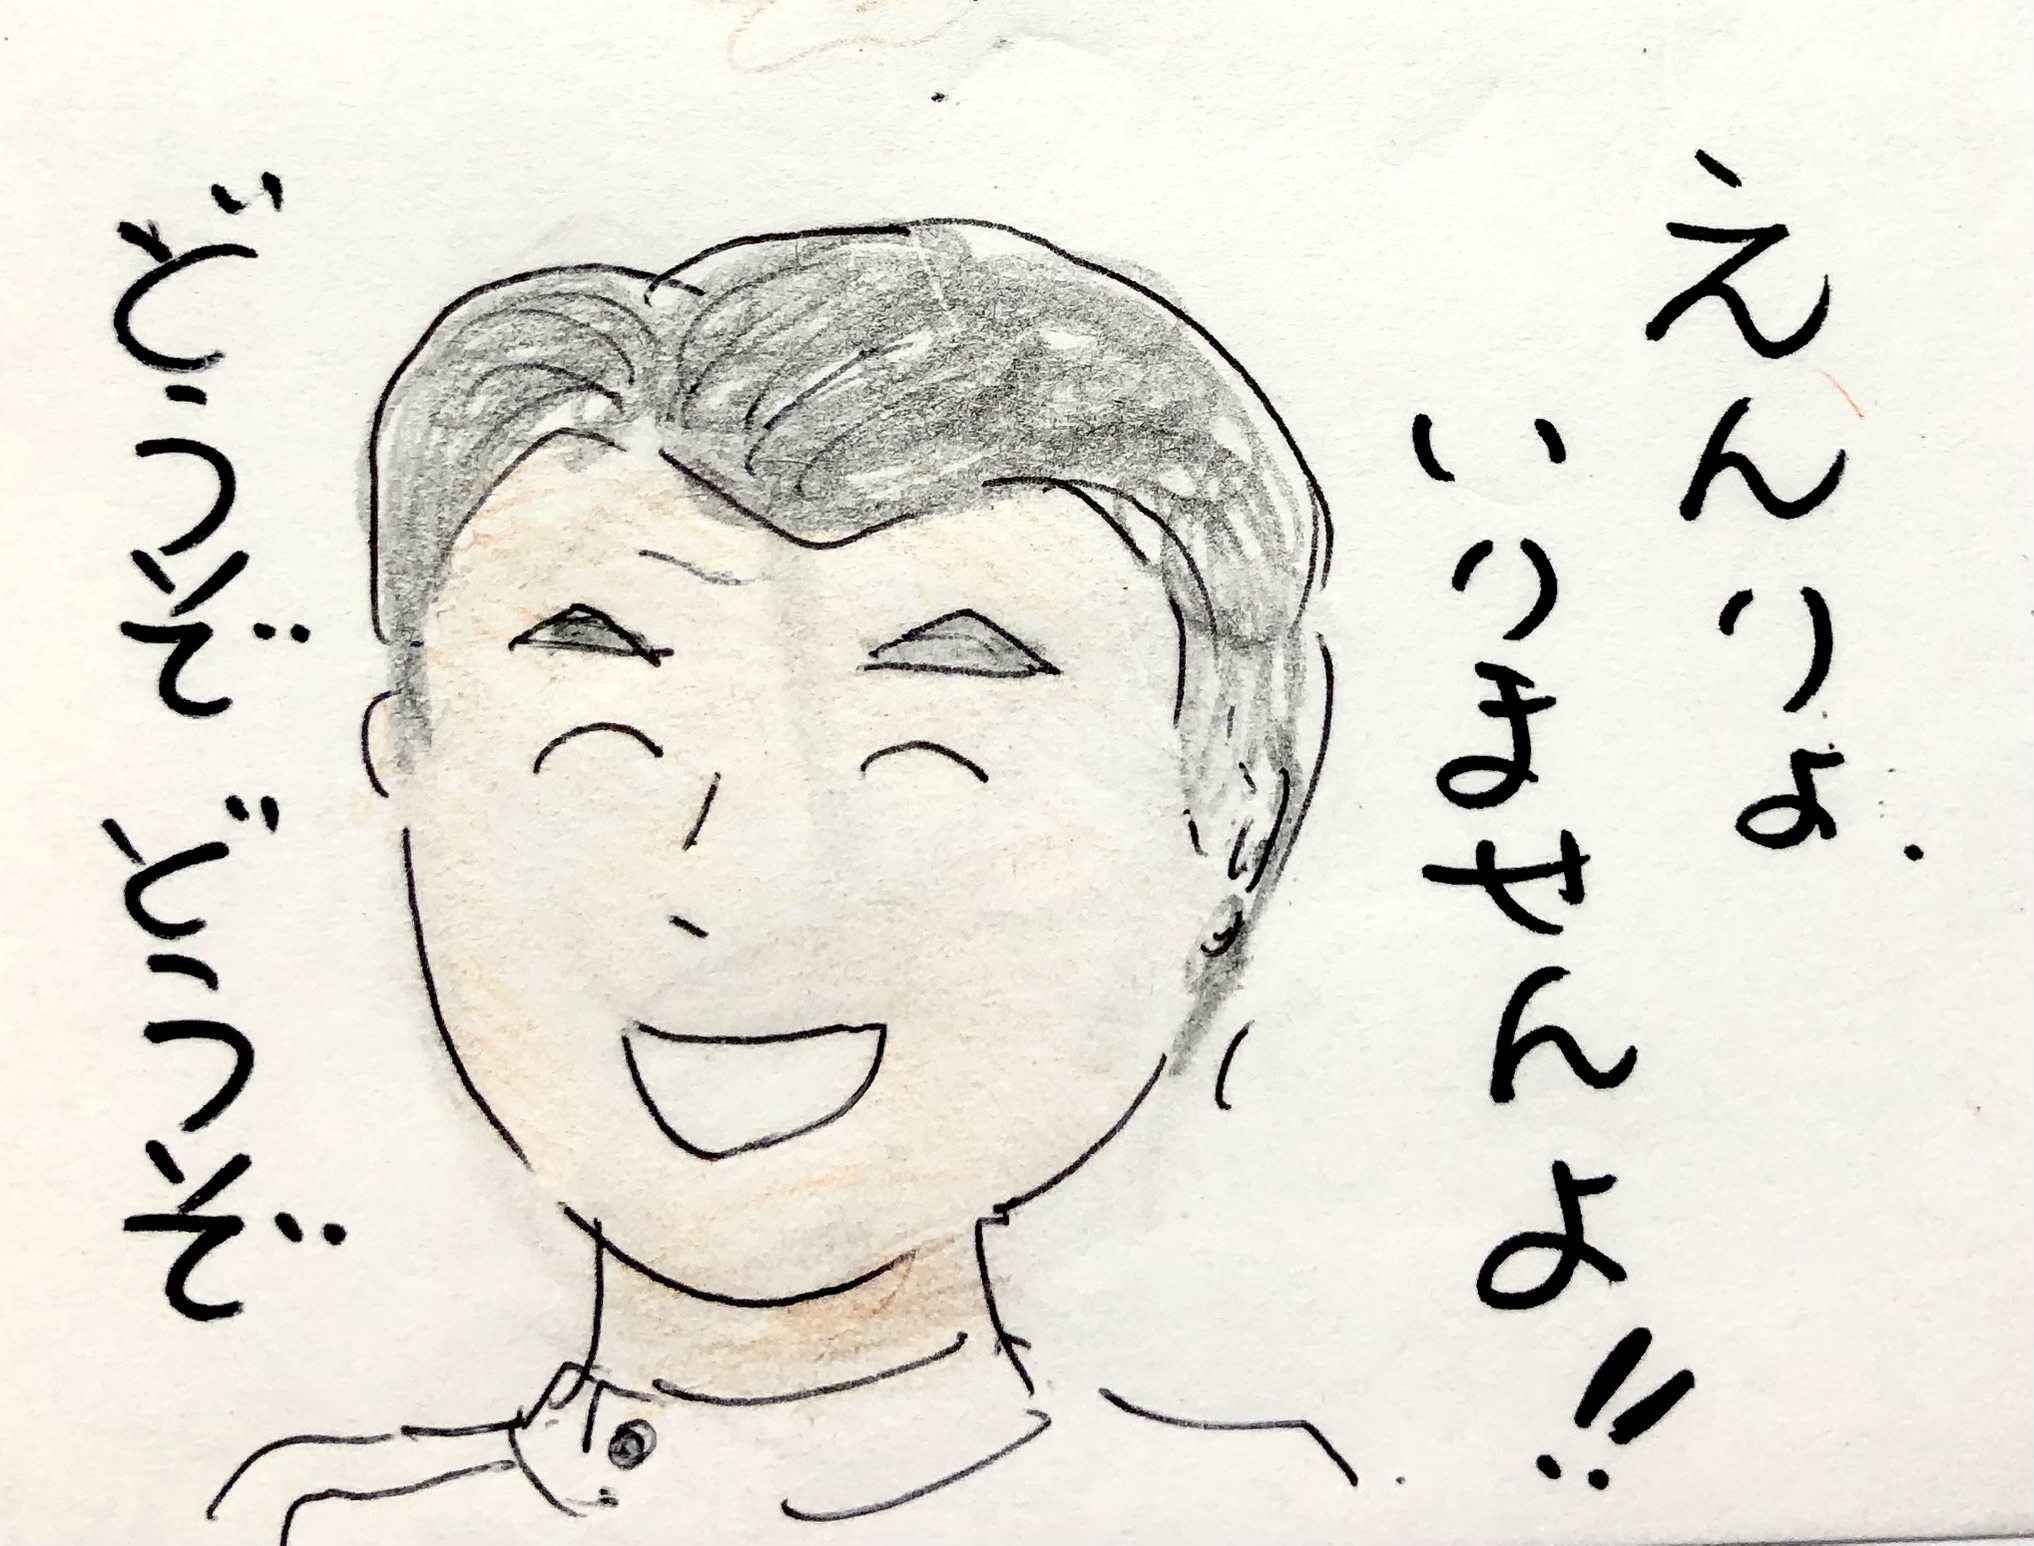 えんりょ
いりませんよ!!
どうぞどうぞ